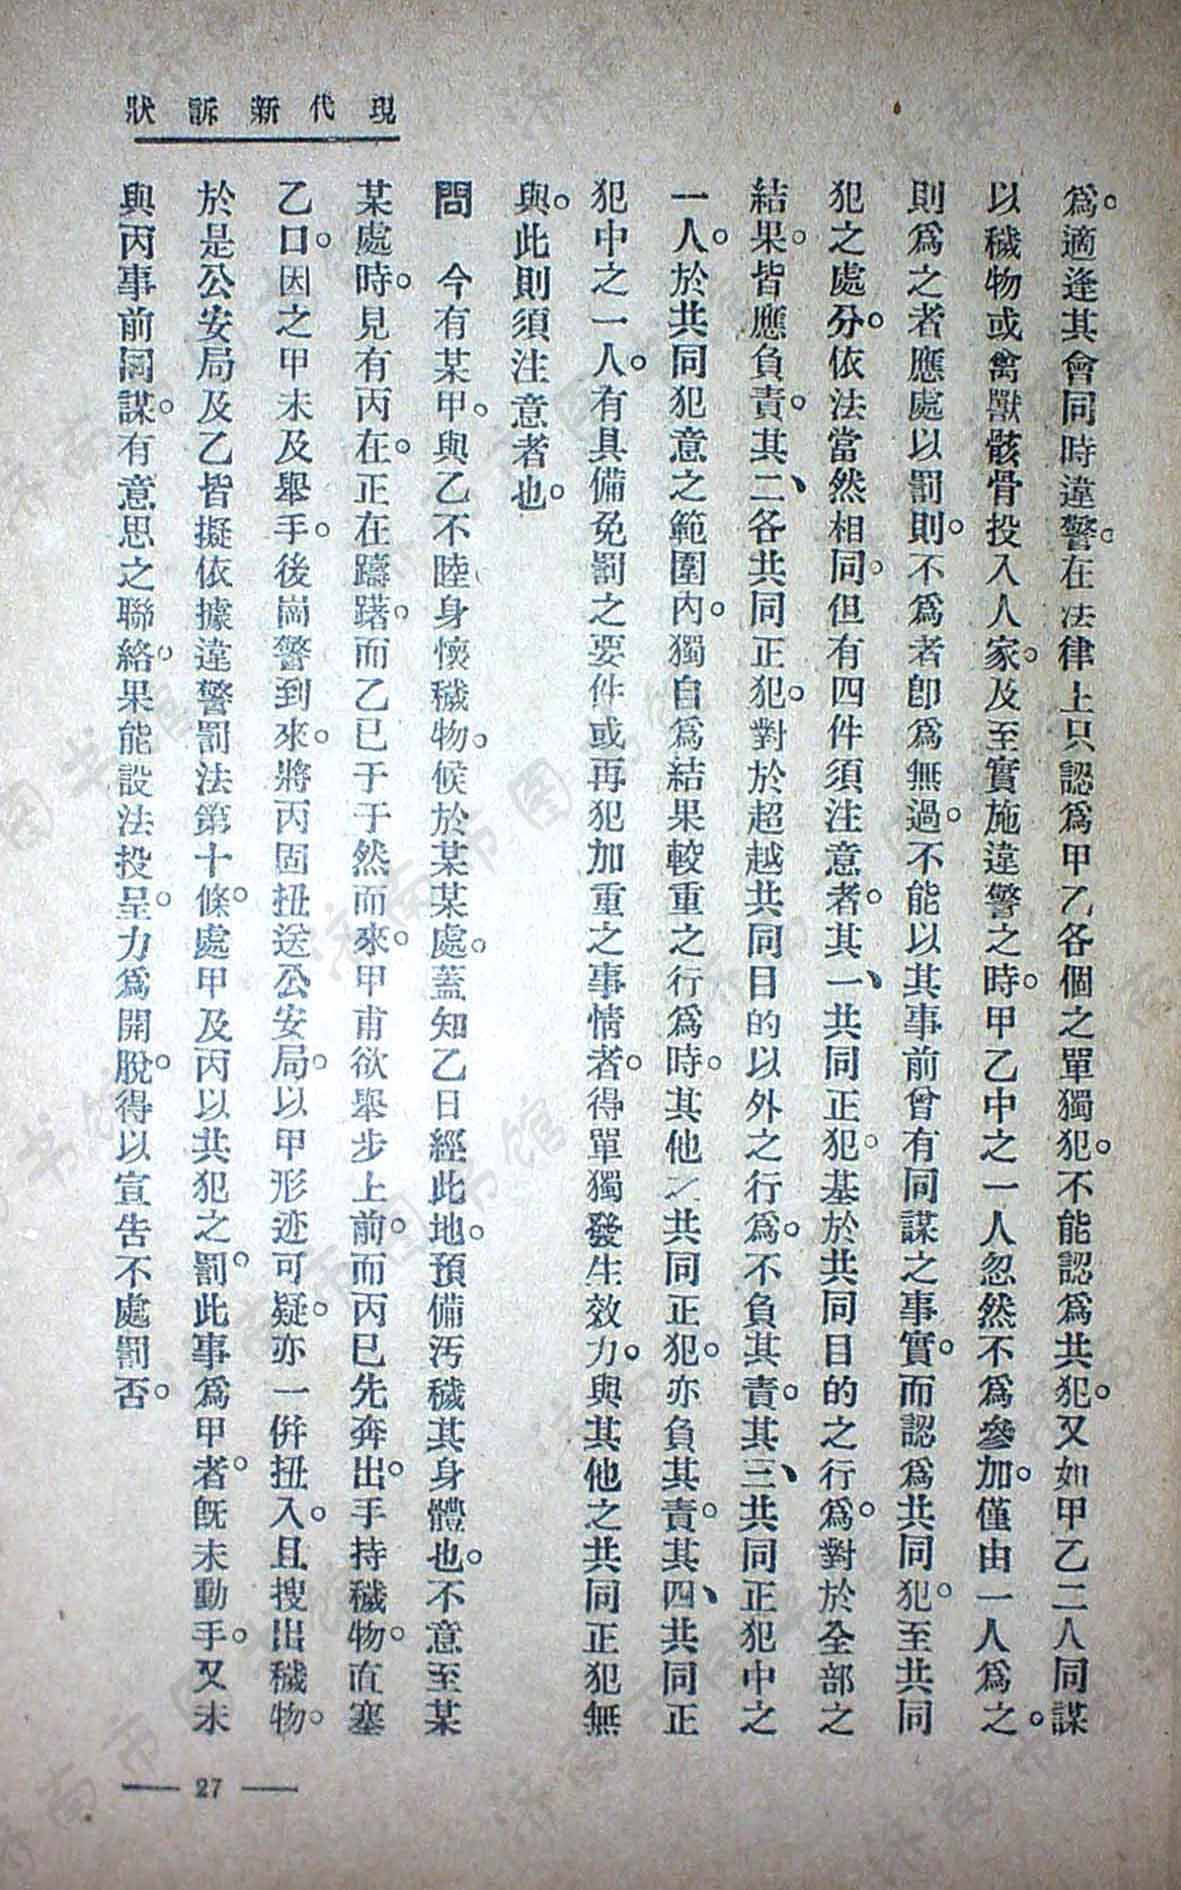 現代新訴狀
爲。適逢其會同時違警。在法律上只認爲甲乙各個之單獨犯。不能認爲共犯。又如甲乙二人同謀
以穢物或禽獸骸骨投入人家。及至實施違警之時。甲乙中之一人忽然不爲參加。僅由一人爲之。
則爲之者應處以罰則。不爲者卽爲無過。不能以其事前曾有同謀之事實。而認爲共同犯。至共同
犯之處分。依法當然相同。但有四件須注意者。其一、共同正犯。基於共同目的之行爲。對於全部之
結果。皆應負責。其二、各共同正犯。對於超越共同目的以外之行爲。不負其責。其三、共同正犯中之
一人。於共同犯意之範圍內。獨自爲結果較重之行爲時。其他之共同正犯。亦負其責。其四、共同正
犯中之一人。有具備免罰之要件或再犯加重之事情者。得單獨發生效力。與其他之共同正犯無
與。此則須注意者也。
問　今有某甲。與乙不陸身懷穢物。候於某某處。蓋知乙日經此地。預備汚穢其身體也。不意至某
某處時。見有丙在。正在躊躇。而乙已于于然而來。甲甫欲舉步上前。而丙已先奔出。手持穢物。直塞
乙口。因之甲未及舉手。後崗警到來。將丙固扭送公安局。以甲形迹可疑。亦一併扭入。且搜出穢物。
於是公安局及乙皆擬依據違警罰法第十條。處甲及丙以共犯之罰。此事爲甲者。旣未動手。又未
與丙事前同謀。有意思之聯絡。果能設法投呈。力爲開脫。得以宣告不處罰否。
— 27 —
济南市图书馆